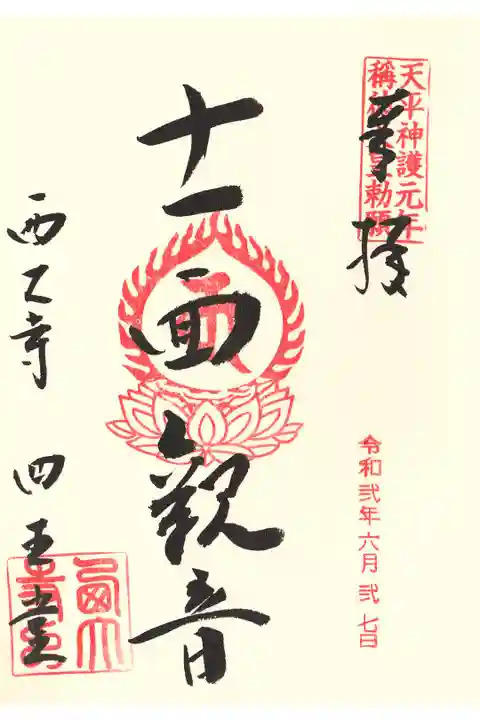 天平神護元年
稱德天皇勅願
奉拝
令和弐年六月弐七日
十一面観音
西大寺 四王堂